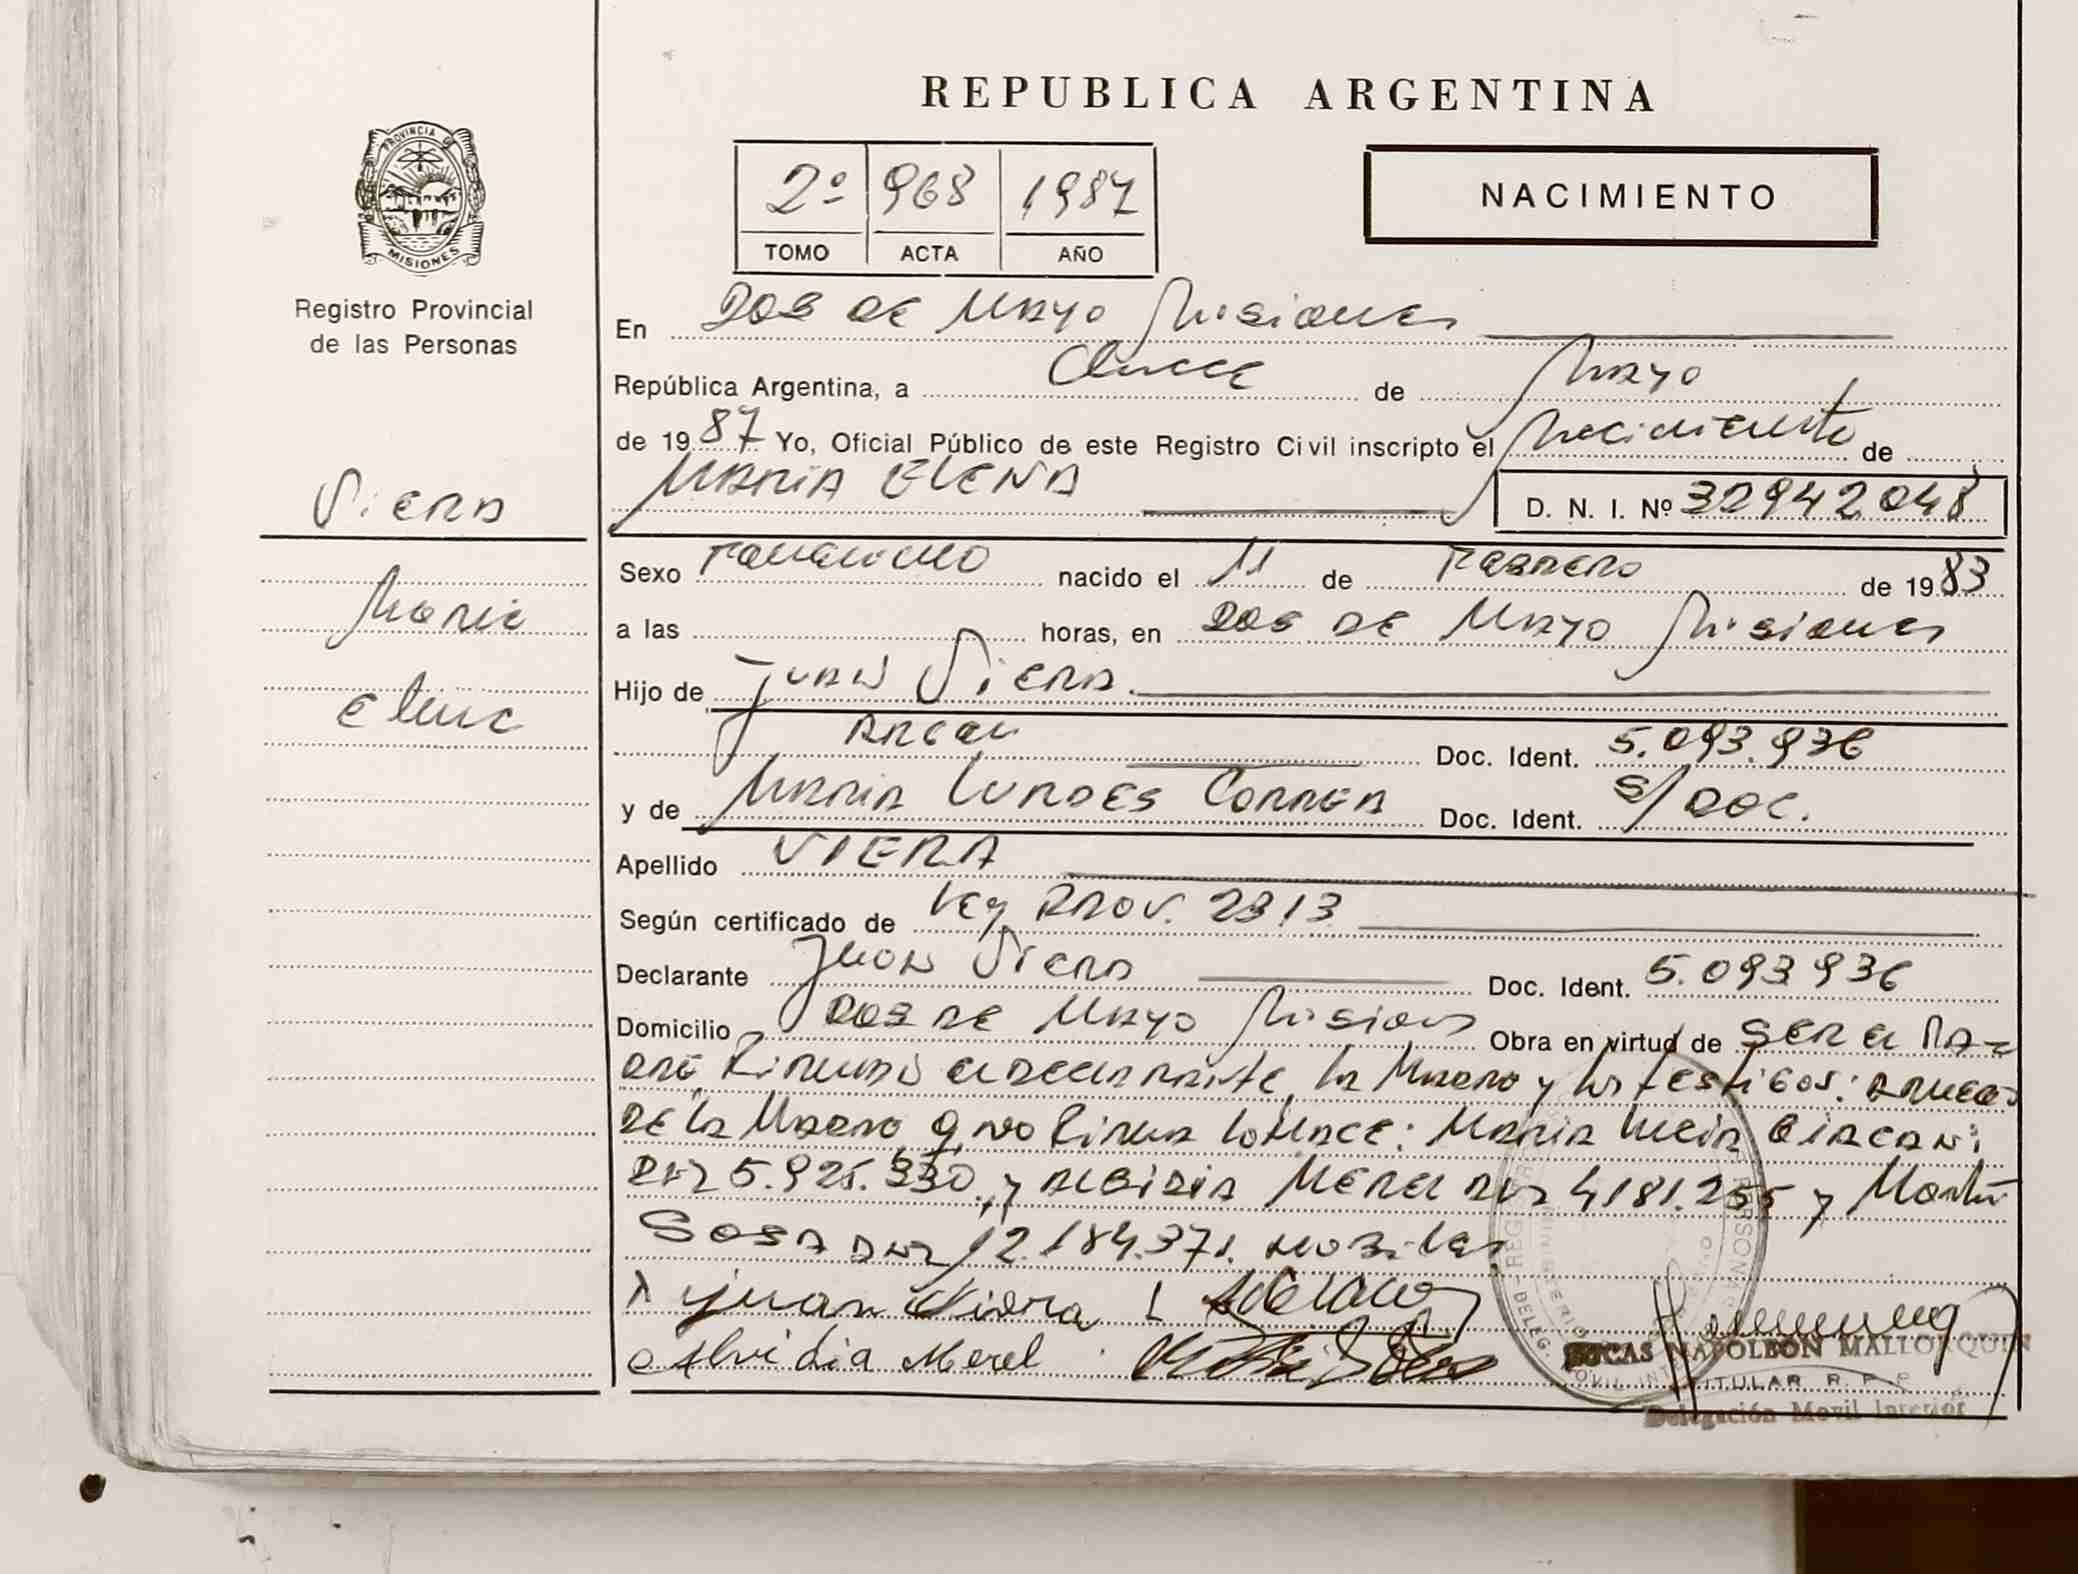 REPUBLICA ARGENTINA
PROVINCIA DE
MISIONES
Registro Provincial
de las Personas
2º 968 1987
TOMO ACTA AÑO
NACIMIENTO
En DOS DE MAYO Misiones
República Argentina, a Once de Mayo
de 1987 Yo, Oficial Público de este Registro Civil inscripto el Nacimiento de
MARIA ELENA D. N. I. Nº 32942048
Viera
Maria
Elena
Sexo Femenino nacido el 11 de Febrero de 1983
a las horas, en DOS DE MAYO Misiones
Hijo de JUAN VIERA
Doc. Ident. 5.093.936
y de MARIA LURDES CORREA Doc. Ident. S/DOC.
Apellido VIERA
Según certificado de Ley PROV. 2313
Declarante Juan Viera Doc. Ident. 5.093936
Domicilio DOS DE MAYO Misiones Obra en virtud de SER el PA-
DRE Firman el declarante, la Madre y los testigos: A RUEGO
DE la MADRE q no Firma lo HACE: MARIA Lucia
5.925.330 y Merel 4181.255 y Martin
SOSA 12.184.371.
Juan Viera
Alvidia Merel
LUCAS NAPOLEON MALLORQUIN
TITULAR R. P. P.
Delegación Movil Interior